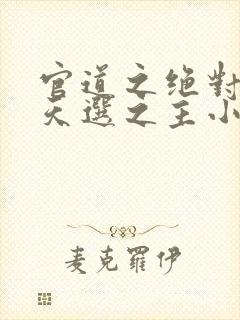 官道之绝對
天選之主小
麦克羅伊